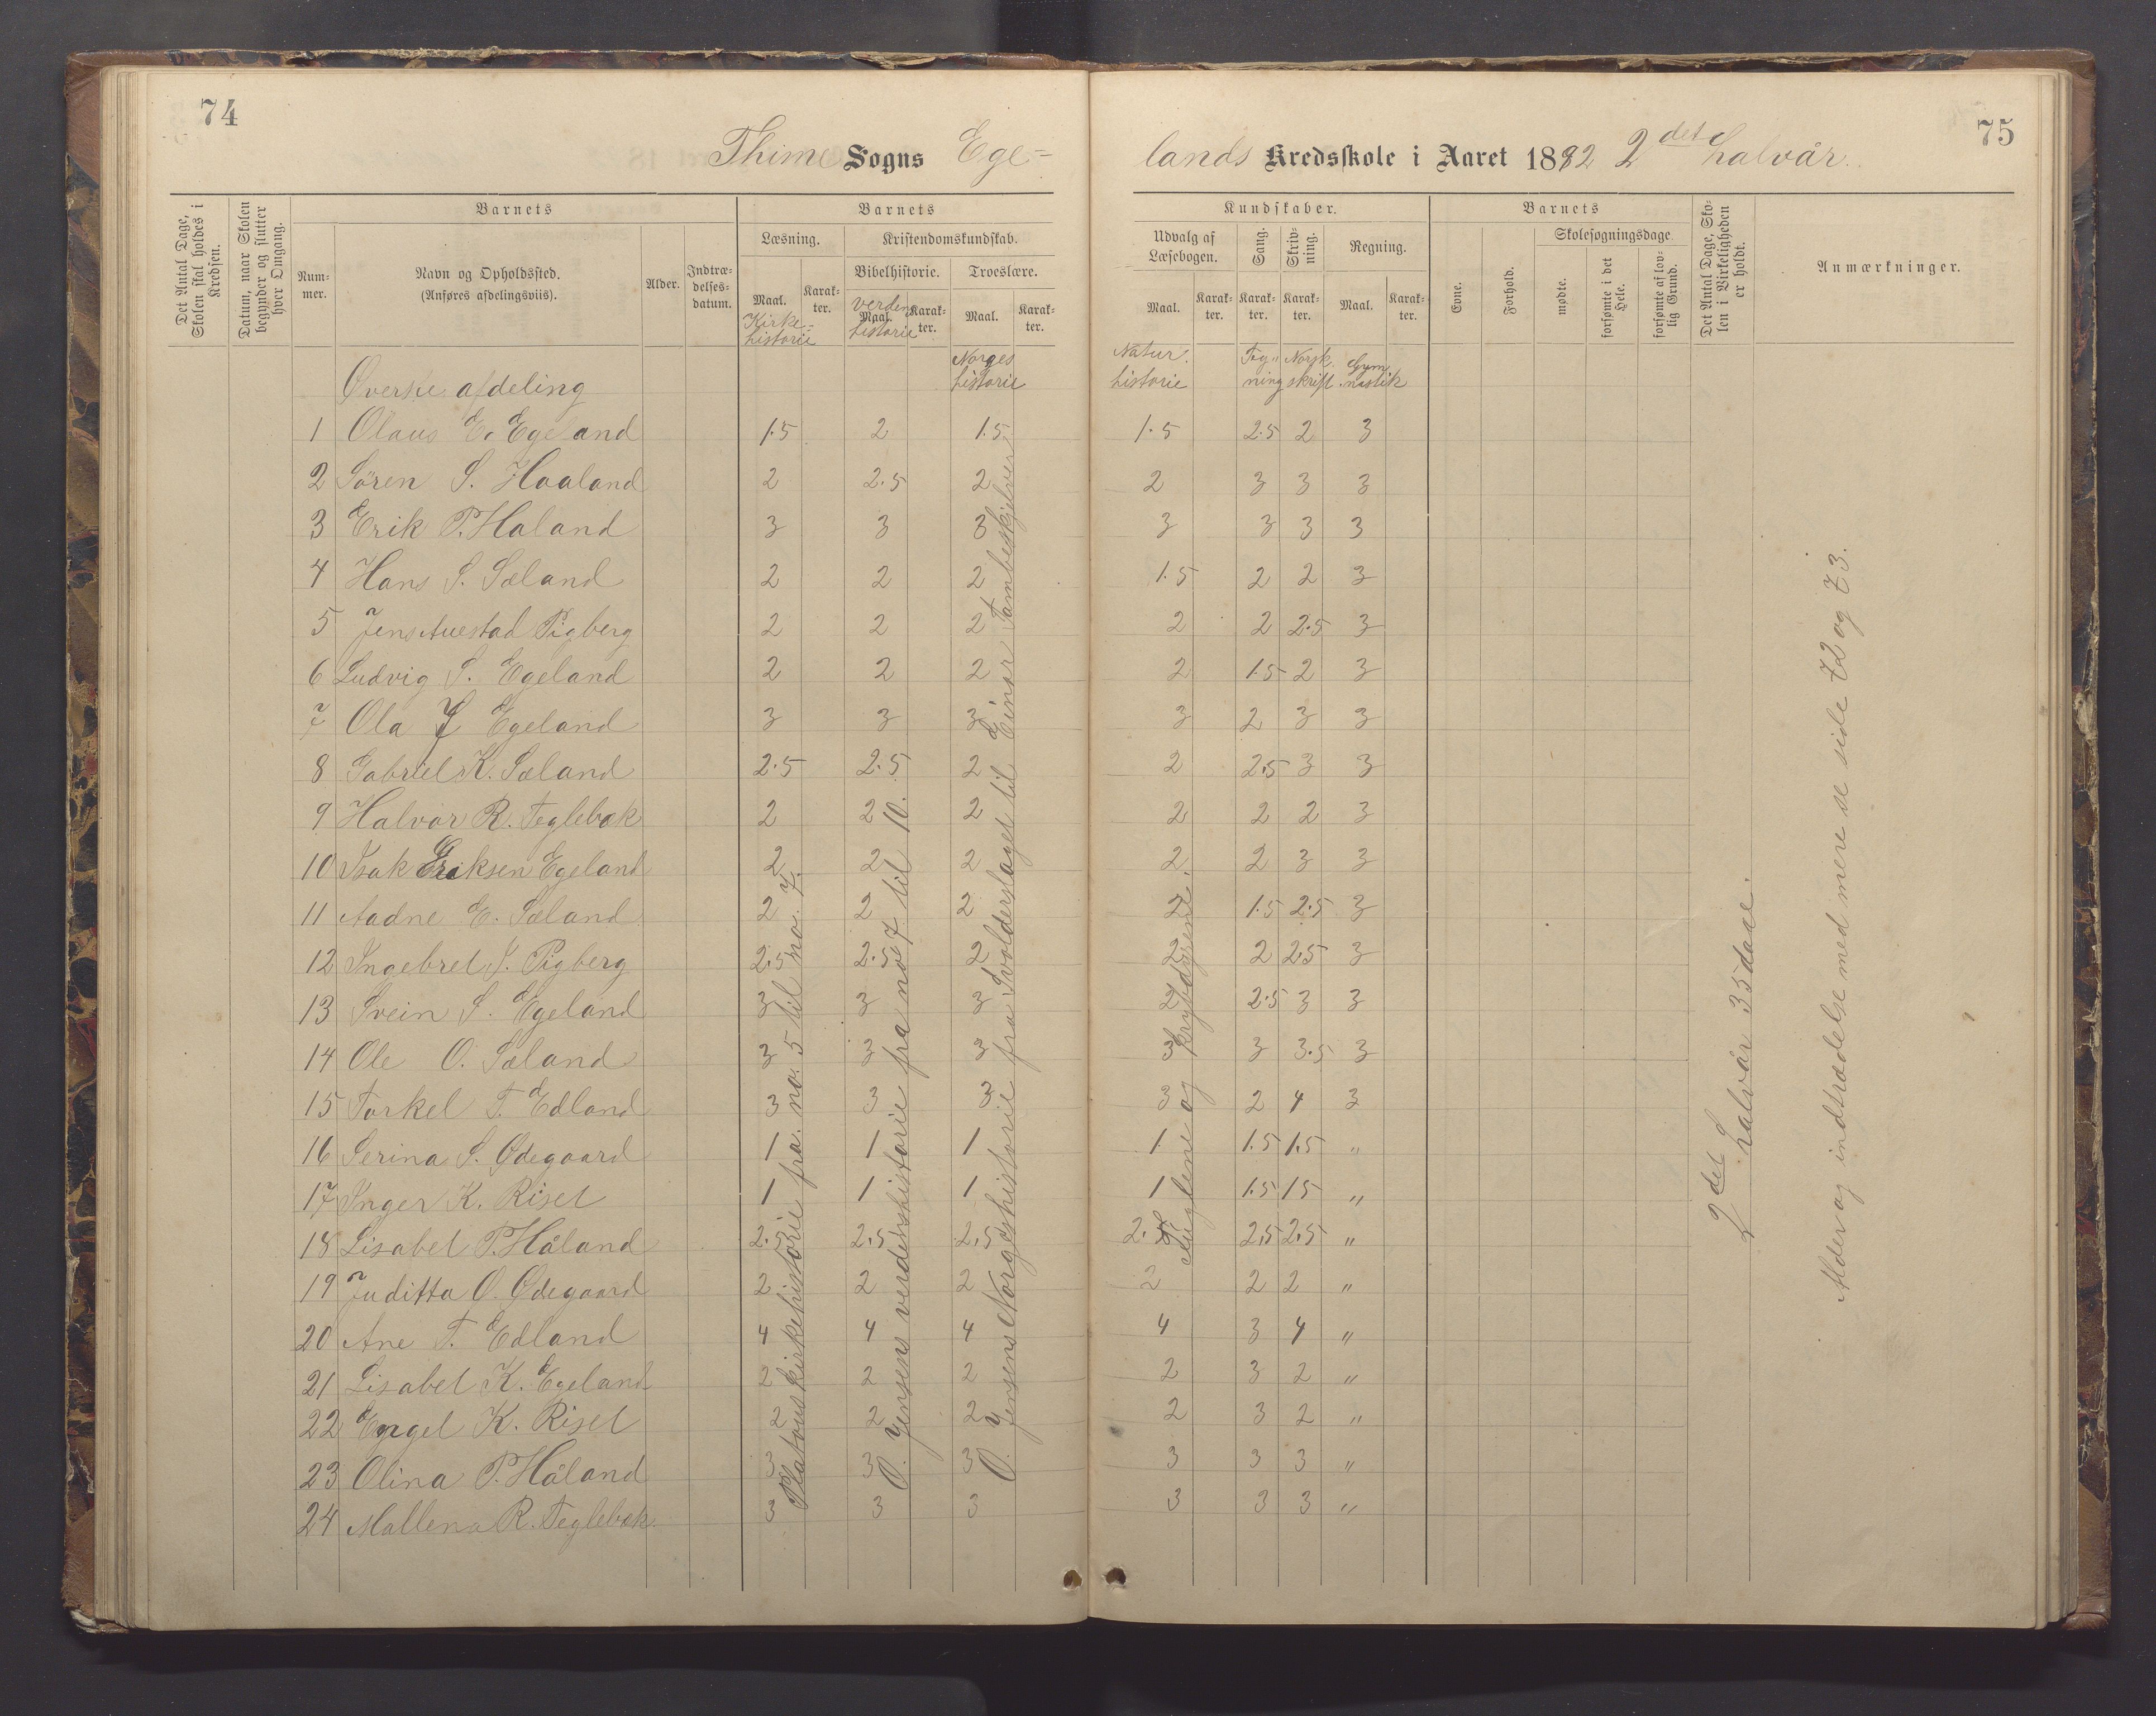 74
75
Thime Sogns Ege=
lands Kredsskole i Aaret 1882 2det halvår.
Det Antal Dage, Skolen skal holdes i Kredsen.
Datum, naar Skolen begynder og slutter hver Omgang.
Barnets
Barnets
Kundskaber.
Barnets
Num-mer.
Navn og Opholdssted.
(Anføres afdelingsviis).
Alder.
Indtræ-delses-datum.
Læsning.
Kristendomskundskab.
Bibelhistorie.
Troeslære.
Maal.
Karak-ter.
Maal.
Karak-ter.
Maal.
Karak-ter.
Kirke=historie
verdens historie
Norges historie
Udvalg af Læsebogen.
Sang.
Skriv-ning.
Regning.
Maal.
Karak-ter.
Karak-ter.
Karak-ter.
Maal.
Karak-ter.
Evne.
Forhold.
Skolesøgningsdage.
mødte.
forsømte i det Hele.
forsømte af lov-lig Grund.
Det Antal Dage, Sko-len i Virkeligheden er holdt.
Anmærkninger.
Natur historie
Teg"ning
Norsk skrift
Gym nastik
Øverste afdeling
1 Olaus E. Egeland 1.5 2 1.5 1.5 2.5 2 3
2 Sören S. Haaland 2 2.5 2 2 3 3 3
3 Erik P. Haland 3 3 3 3 3 3 3
4 Hans S. Sæland 2 2 2 1.5 2 2 3
5 Jens Auestad Pigberg 2 2 2 2 2 2.5 3
6 Ludvig S. Egeland 2 2 2 2 1.5 2 3
7 Ola J Egeland 3 3 3 3 2 3 3
8 Gabriel K. Sæland 2.5 2.5 2 2 2.5 3 3
9 Halvor R. Teglebak 2 2 2 2 2 2 3
10 Isak Eriksen Egeland 2 2 2 2 2 3 3
11 Aadne E. Sæland 2 2 2 2 1.5 2.5 3
12 Ingebret J. Pigberg 2.5 2.5 2 2 2 2.5 3
13 Svein S. Egeland 3 3 3 2 2.5 3 3
14 Ole O. Sæland 3 3 3 3 3 3.5 3
15 Torkel T. Edland 3 3 3 3 2 4 3
16 Serina S. Ødegaard 1 1 1 1 1.5 1.5 "
17 Inger K. Riset 1 1 1 1 1.5 15 "
18 Lisabet P. Håland 2.5 2.5 2.5 2.5 2.5 2.5 "
19 Juditta O. Ødegaard 2 2 2 2 2 2 "
20 Ane T. Edland 4 4 4 4 3 4 "
21 Lisabet K. Egeland 2 2 2 2 3 2 "
22 Engel K. Riset 2 2 2 2 3 2 "
23 Olina P. Håland 3 3 3 3 3 3 "
24 Mallena R. Teglebak 3 3 3 3 3 3 "
Platous kirkehistorie fra no. 5 til no. 7.
O. Jensens verdenshistorie fra no 7 til 10.
O. Jensens Norgeshistorie fra Svolderslaget til Einar Tambeskjelver
Fuglene og krybdyrene.
2det halvår 35 dage.
Alder og indtrædelse med mere se side 72 og 73.